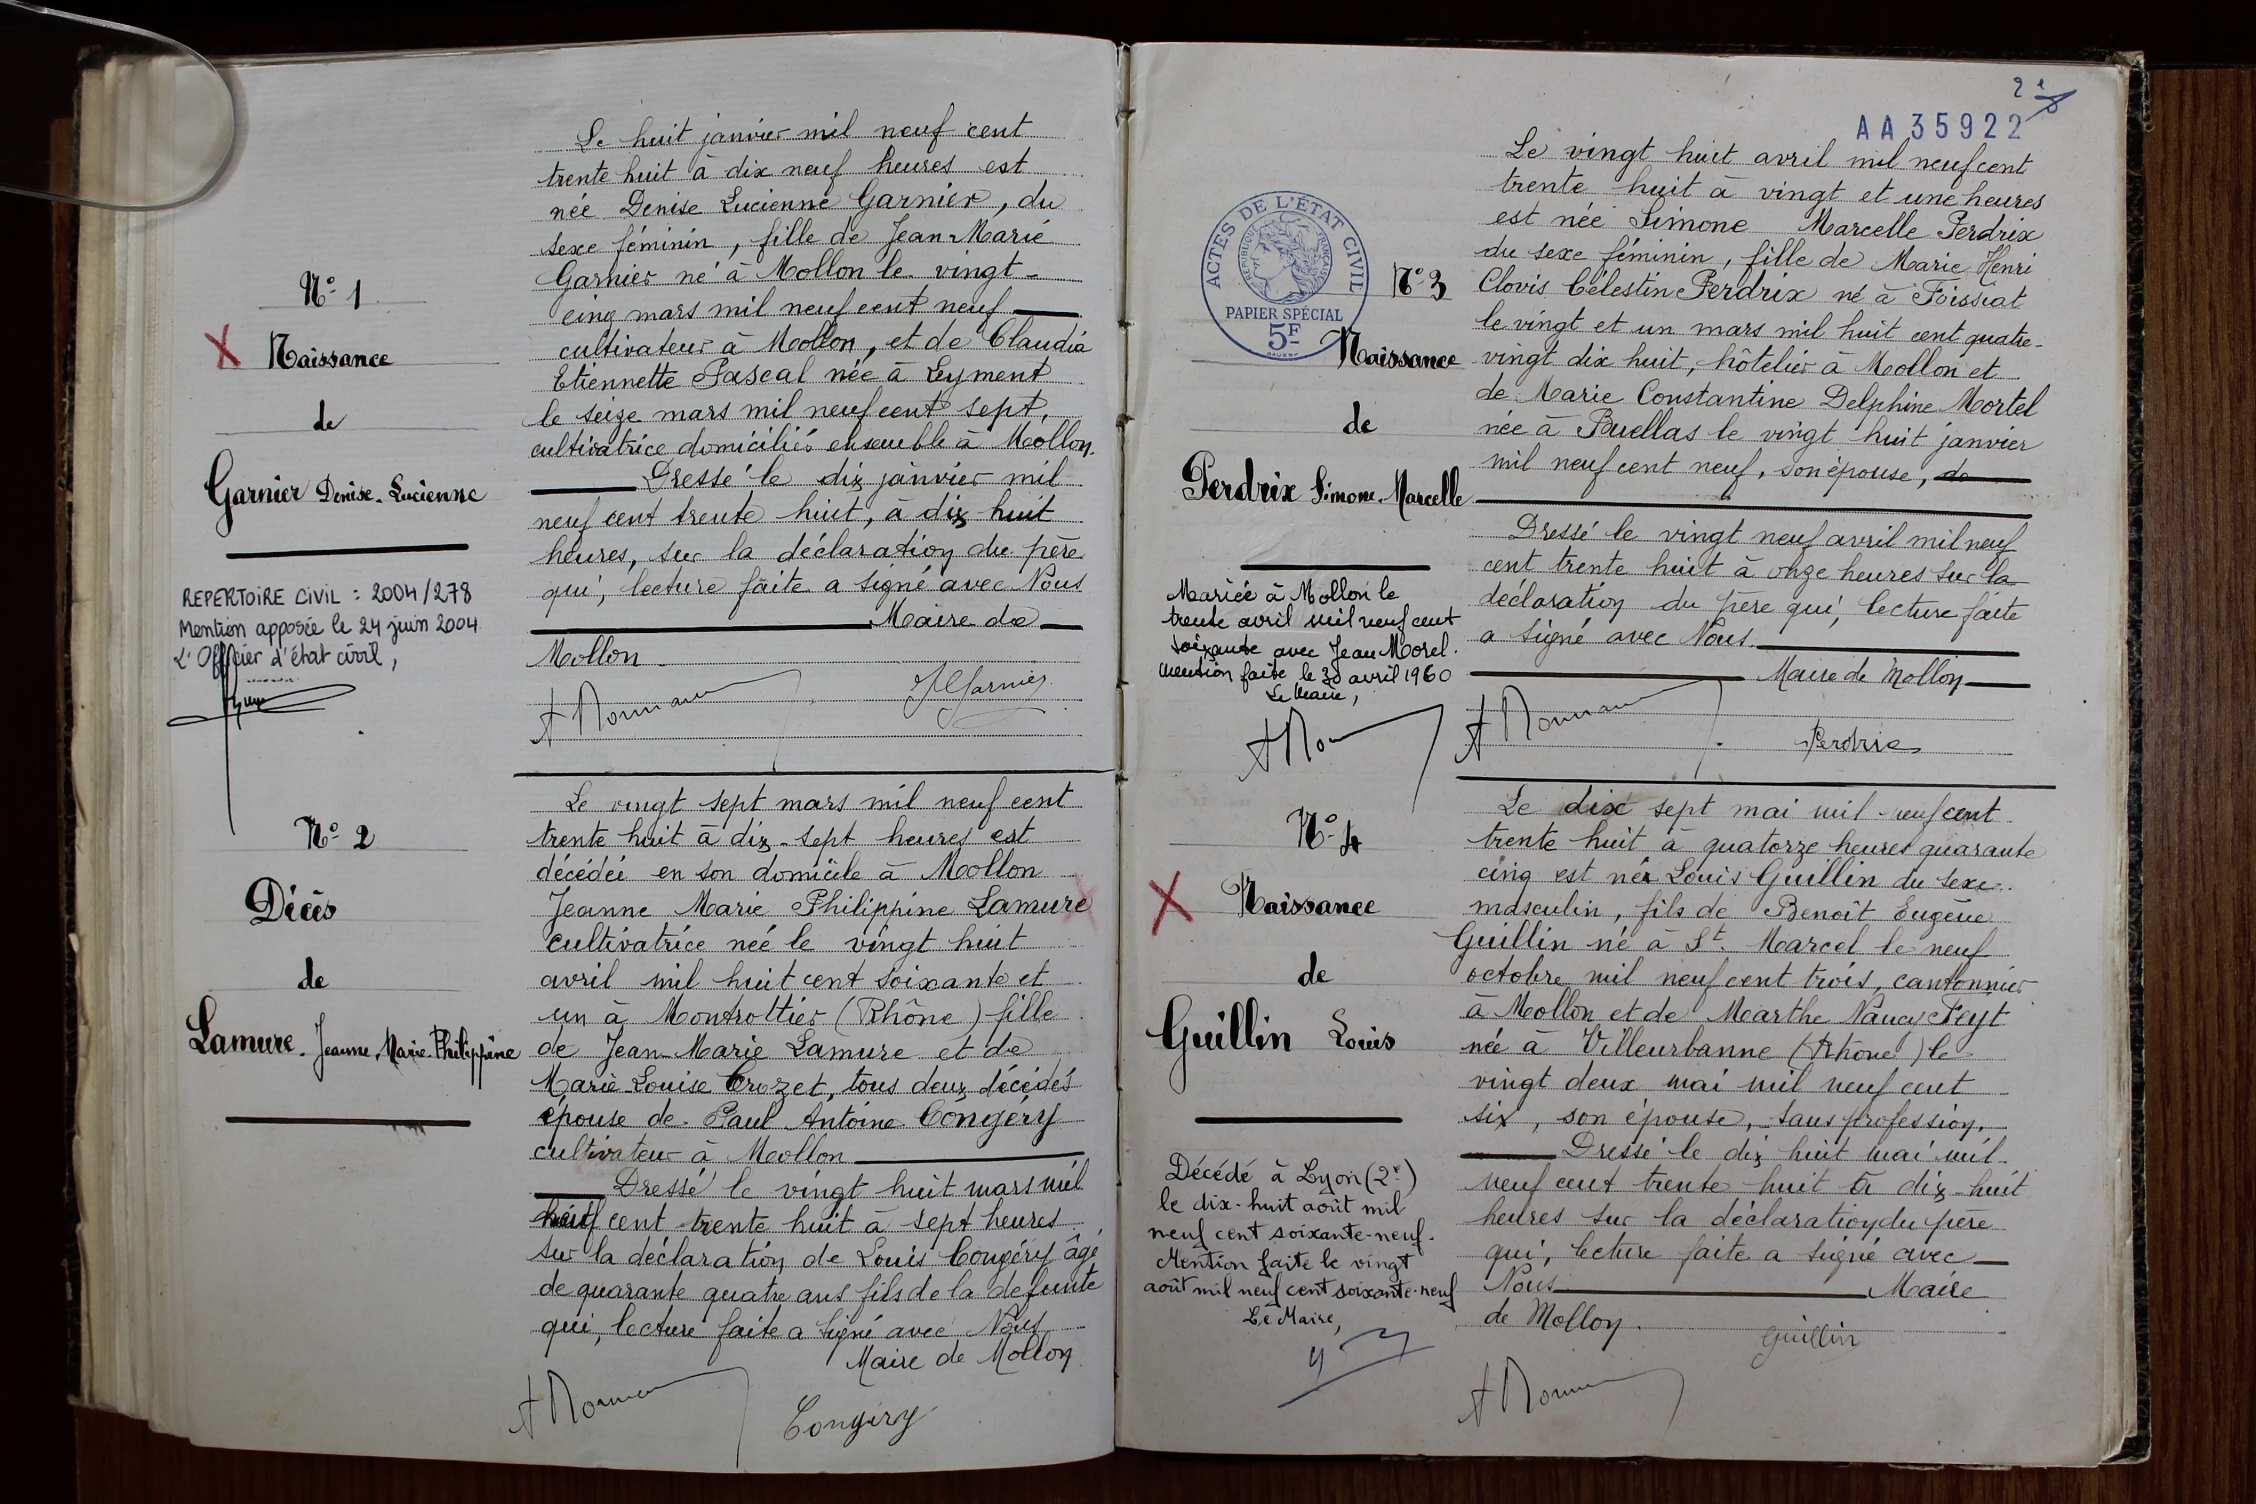 N° 1
Naissance
de
Garnier Denise-Lucienne
REPERTOIRE CIVIL : 2004/278
Mention apposée le 24 juin 2004
L'Officier d'état civil,
Le huit janvier mil neuf cent
trente huit à dix neuf heures est
née Denise Lucienne Garnier, du
sexe féminin, fille de Jean-Marie
Garnier né à Mollon le vingt-
cinq mars mil neuf cent neuf
cultivateur à Mollon, et de Claudia
Etiennette Pascal née à Leyment
le seize mars mil neuf cent sept,
cultivatrice domiciliés ensemble à Mollon.
Dressé le dix janvier mil
neuf cent trente huit, à dix huit
heures, sur la déclaration du père
qui, lecture faite a signé avec Nous
Maire de
Mollon
JGarnier
N° 2
Décès
de
Lamure-Jeanne-Marie-Philippine
Le vingt sept mars mil neuf cent
trente huit à dix-sept heures est
décédée en son domicile à Mollon
Jeanne Marie Philippine Lamure
cultivatrice née le vingt huit
avril mil huit cent soixante et
un à Montrottier (Rhône) fille
de Jean-Marie Lamure et de
Marie-Louise Crozet, tous deux décédés
épouse de Paul Antoine Congéry
cultivateur à Mollon
Dressé le vingt huit mars mil
neuf cent trente huit à sept heures
sur la déclaration de Louis Congéry âgé
de quarante quatre ans fils de la defunte
qui, lecture faite a signé avec Nous
Maire de Mollon
Congéry
2e
AA35922
ACTES DE L'ÉTAT CIVIL
RÉPUBLIQUE FRANÇAISE
PAPIER SPÉCIAL
5F
N° 3
Naissance
de
Perdrix Simone-Marcelle
Mariée à Mollon le
trente avril mil neuf cent
soixante avec Jean Morel.
Mention faite le 30 avril 1960
Le Maire,
Le vingt huit avril mil neuf cent
trente huit à vingt et une heures
est née Simone Marcelle Perdrix
du sexe féminin, fille de Marie Henri
Clovis Célestin Perdrix né à Foissiat
le vingt et un mars mil huit cent quatre-
vingt dix huit, hôtelier à Mollon et
de Marie Constantine Delphine Mortel
née à Buellas le vingt huit janvier
mil neuf cent neuf, son épouse, do
Dressé le vingt neuf avril mil neuf
cent trente huit à onze heures sur la
déclaration du père qui, lecture faite
a signé avec Nous
Maire de Mollon
Perdrix
N° 4
Naissance
de
Guillin Louis
Décédé à Lyon (2e)
le dix-huit août mil
neuf cent soixante-neuf.
Mention faite le vingt
août mil neuf cent soixante-neuf
Le Maire,
Le dix sept mai mil neuf cent
trente huit à quatorze heures quarante
cinq est né Louis Guillin du sexe
masculin, fils de Benoît Eugène
Guillin né à St. Marcel le neuf
octobre mil neuf cent trois, cantonnier
à Mollon et de Marthe Nancy Feyt
née à Villeurbanne (Rhône) le
vingt deux mai mil neuf cent
six, son épouse, sans profession.
Dressé le dix huit mai mil
neuf cent trente huit à dix-huit
heures sur la déclaration du père
qui, lecture faite a signé avec
Nous Maire
de Mollon.
Guillin